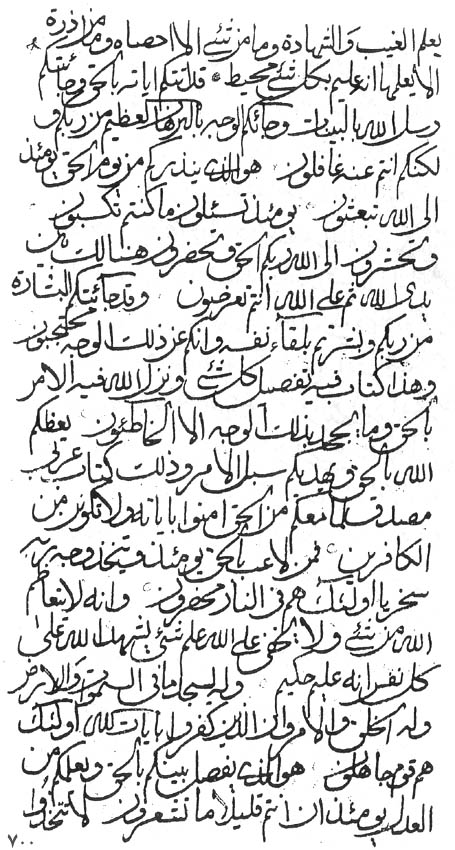 يعلم الغيب والشهادة وما من شئ الا احصاه وما من ذرة
الا يعلمها انه عليم بكل شئ محيط * قد اتتكم اياته بالحق وجائتكم
رسل الله بالبينات وجائكم الوجه بالبرهان العظيم من ربكم و
لكنكم انتم عنه غافلون هو الذي ينذركم من يوم الحق يومئذ
الى الله تبعثون يومئذ تسئلون ما كنتم تكسبون
وتحشرون الى الله ربكم الحق وتحضرون هنالك بين
يدى الله ثم على الله انتم تعرضون وقد جائتكم البشارة
من ربكم وبشرتم بلقاء نفسه وانكم عن ذلك الوجه محتجبون
وهذا كتاب فيه تفصيل كل شئ ونزل الله فيه الامر
بالحق وما يجحد بذلك الوجه الا الخاطئون يعظكم
الله بالحق ويهديكم سبل الامر وذلك كتاب عربي
مصدق لما معكم من الحق امنوا باياته ولا تكونن من
الكافرين فمن لاعب بالحق يومئذ ويتخذ وجه ربه
سخريا اولئك هم في النار محضرون وانه لا يتعاظم
الله من شئ ولا يخفى على الله علم شئ يشهد الله على
كل نفس انه عليم حكيم وله يسجد ما في السموات والارض
وله الخلق والامر وان الذين كفروا بايات الله اولئك
هم قوم جاهلون هو الذي يفصل بينكم بالحق ويعلمكم من
العدل يومئذ ان انتم قليلا ما تشعرون لا تتخذوا
٧٠٠